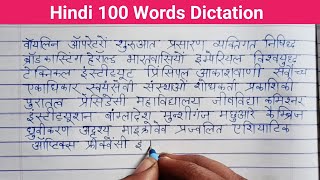 Hindi 100 Words Dictation
वॉयलिन ऑपरेटरों शुरुआत प्रसारण व्यक्तिगत निषिद्ध
ब्रॉडकास्टिंग हेराल्ड भारतवासियों इम्पीरियल विश्वयुद्ध
टेक्निकल इंस्टीट्यूट प्रिंसिपल आकाशवाणी सर्वोच्च
एकाधिकार स्वयंसेवी संस्थाओं शोधकर्ता प्रकाशिकी
पुरातत्व प्रेसिडेंसी महाविद्यालय जीर्णविद्या कमिश्नर
इंस्टीट्यूशन बांग्लादेश मुन्शीगंज मछुआरे कैम्ब्रिज
ध्रुवीकरण अदृश्य माइक्रोवेव प्रज्वलित एशियाटिक
ऑप्टिक्स फ्रीक्वेंसी इ